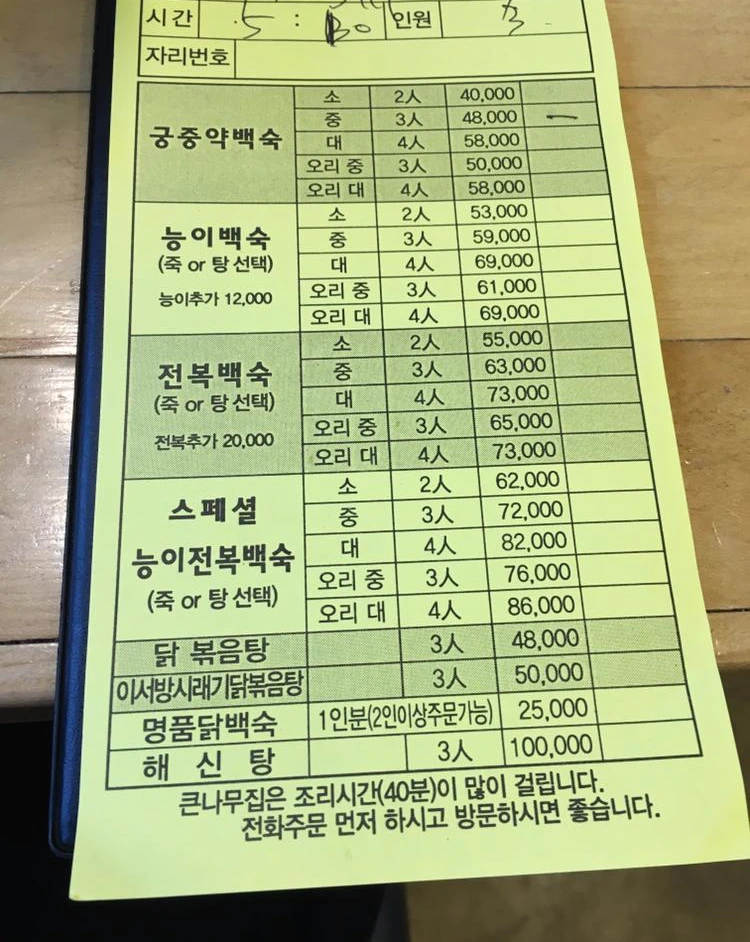 시간 5 : 인원 3
자리번호
궁중약백숙
소 2人 40,000
중 3人 48,000 ー
대 4人 58,000
오리 중 3人 50,000
오리 대 4人 58,000
능이백숙
(죽 or 탕 선택)
능이추가 12,000
소 2人 53,000
중 3人 59,000
대 4人 69,000
오리 중 3人 61,000
오리 대 4人 69,000
전복백숙
(죽 or 탕 선택)
전복추가 20,000
소 2人 55,000
중 3人 63,000
대 4人 73,000
오리 중 3人 65,000
오리 대 4人 73,000
스페셜
능이전복백숙
(죽 or 탕 선택)
소 2人 62,000
중 3人 72,000
대 4人 82,000
오리 중 3人 76,000
오리 대 4人 86,000
닭 볶음탕 3人 48,000
이서방시래기닭볶음탕 3人 50,000
명품닭백숙 1인분(2인이상주문가능) 25,000
해 신 탕 3人 100,000
큰나무집은 조리시간(40분)이 많이 걸립니다.
전화주문 먼저 하시고 방문하시면 좋습니다.